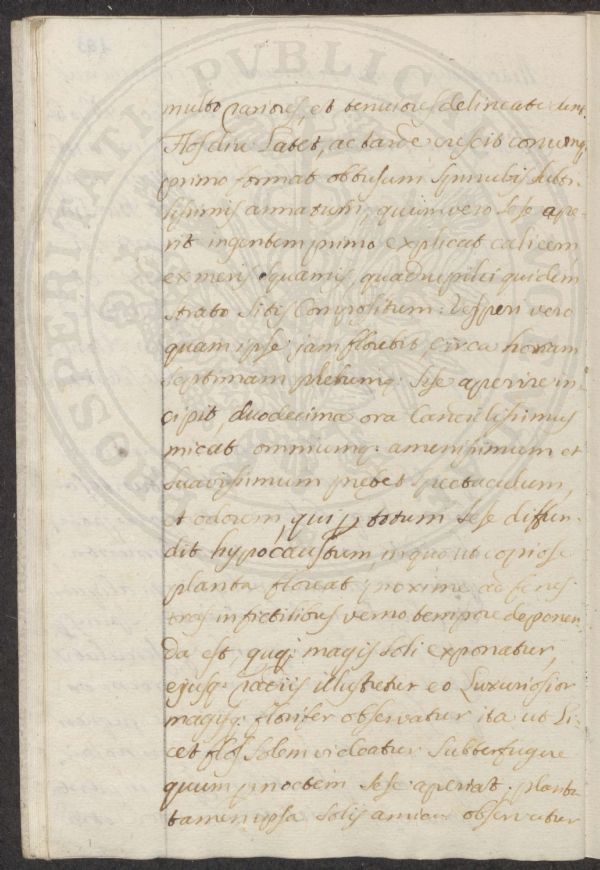 multo rariores, et tenuiores delineatæ sunt.
Flos diu latet, ac tarde crescit conumq;
primo format obtusum spinulis subti-
lissimis armatum, quum vero sese ape-
rit ingentem primo explicat calicem
ex meris squamis, quadruplici quidem
strato sitis compositum: Vesperi vero
quam ipse jam florebit, circa horam
septimam plerumq; sese aperire in-
cipit, duodecima ora
micat omniumq; amenissimum et
suavissimum prebet spectaculum,
et odorem, qui p totum sese diffun-
dit hypocaustum, in quo ut copiose
planta floreat proxime ad fenes-
tras in fictilibus verno tempore deponen-
da est, quoq; magis soli exponatur,
ejusq; radiis illustretur eo luxuriosior
magisq; florifer observatur ita ut li-
cet flos solem videatur subterfugere
quum p noctem sese aperiat, planta
tamen ipsa solis amica observatur
PROSPERITATI PUBLICÆ